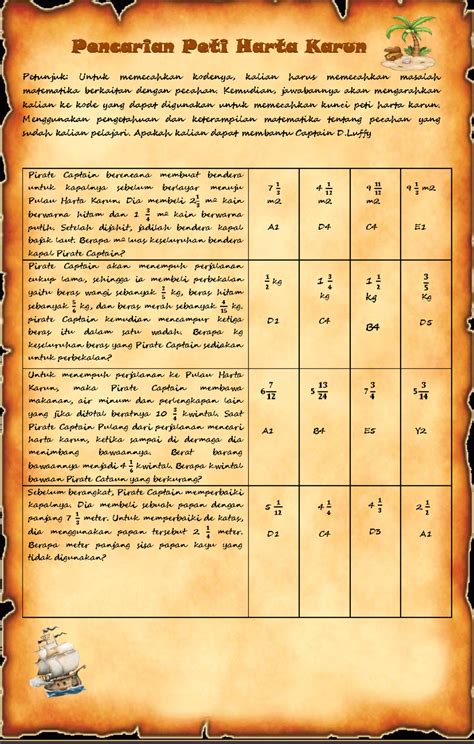 Pencarian Peti Harta Karun
Petunjuk: Untuk memecahkan kodenya, kalian harus memecahkan masalah
matematika berkaitan dengan pecahan. Kemudian, jawabannya akan mengarahkan
kalian ke kode yang dapat digunakan untuk memecahkan kunci peti harta karun.
Menggunakan pengetahuan dan keterampilan matematika tentang pecahan yang
sudah kalian pelajari. Apakah kalian dapat membantu Captain D.Luffy
Pirate Captain berencana membuat bendera
untuk kapalnya sebelum berlayar menuju
Pulau Harta Karun. Dia membeli 2 1/3 m² kain
berwarna hitam dan 1 3/4 m² kain berwarna
putih. Setelah dijahit, jadilah bendera kapal
bajak laut. Berapa m² luas keseluruhan bendera
kapal Pirate Captain?
7 1/3 m2
A1
4 1/12 m2
D4
9 11/12 m2
C4
9 1/3 m2
E1
Pirate Captain akan menempuh perjalanan
cukup lama, sehingga ia membeli perbekalan
yaitu beras wangi sebanyak 2/5 kg, beras hitam
sebanyak 5/6 kg, dan beras merah sebanyak 4/15 kg.
pirate Captain kemudian mencampur ketiga
beras itu dalam satu wadah. Berapa kg
keseluruhan beras yang Pirate Captain sediakan
untuk perbekalan?
1/2 kg
D1
1 3/4 kg
C4
1 1/2 kg
B4
3/5 Kg
D5
Untuk menempuh perjalanan ke Pulau Harta
Karun, maka Pirate Captain membawa
makanan, air minum dan perlengkapan lain
yang jika ditotal beratnya 10 3/4 kwintal. Saat
Pirate Captain Pulang dari perjalanan mencari
harta karun, ketika sampai di dermaga dia
menimbang bawaannya. Berat barang
bawaannya menjadi 4 1/6 kwintal. Berapa kwintal
bawaan Pirate Cataun yang berkurang?
6 7/12
A1
5 13/24
B4
7 3/4
E5
5 3/14
Y2
Sebelum berangkat, Pirate Captain memperbaiki
kapalnya. Dia membeli sebuah papan dengan
panjang 7 1/3 meter. Untuk memperbaiki de katas,
dia menggunakan papan tersebut 2 1/4 meter.
Berapa meter panjang sisa papan kayu yang
tidak digunakan?
5 1/12
D1
4 1/4
C4
4 1/3
D3
2 1/2
A1